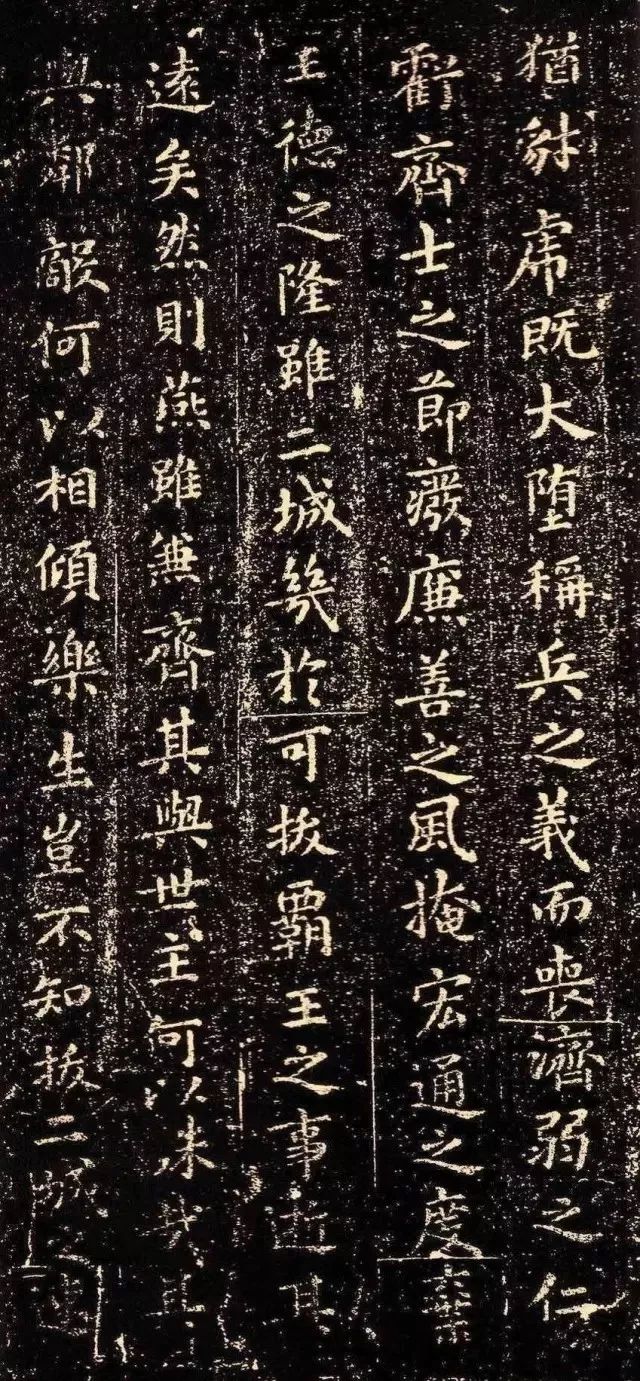 猶豺虎既大堕稱兵之義而喪濟弱之仁
虧齊士之節癈廉善之風掩宏通之度棄
王德之隆雖二城幾於可拔霸王之事逝其
遠矣然則燕雖兼齊其與世主何以殊哉其
與鄰敵何以相傾樂生豈不知拔二城之速